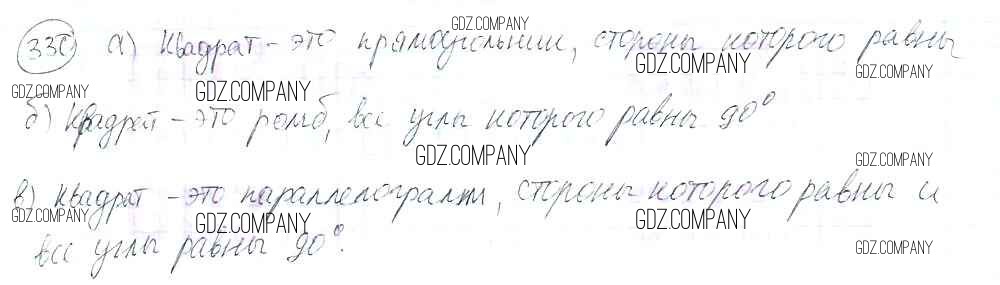 330 а) Квадрат - это прямоугольник, стороны которого равны
б) Квадрат - это ромб, все углы которого равны 90°
в) Квадрат - это параллелограмм, стороны которого равны и
все углы равны 90°.
GDZ.COMPANY
GDZ.COMPANY
GDZ.COMPANY
GDZ.COMPANY
GDZ.COMPANY
GDZ.COMPANY
GDZ.COMPANY
GDZ.COMPANY
GDZ.COMPANY
GDZ.COMPANY
GDZ.COMPANY
GDZ.COMPANY